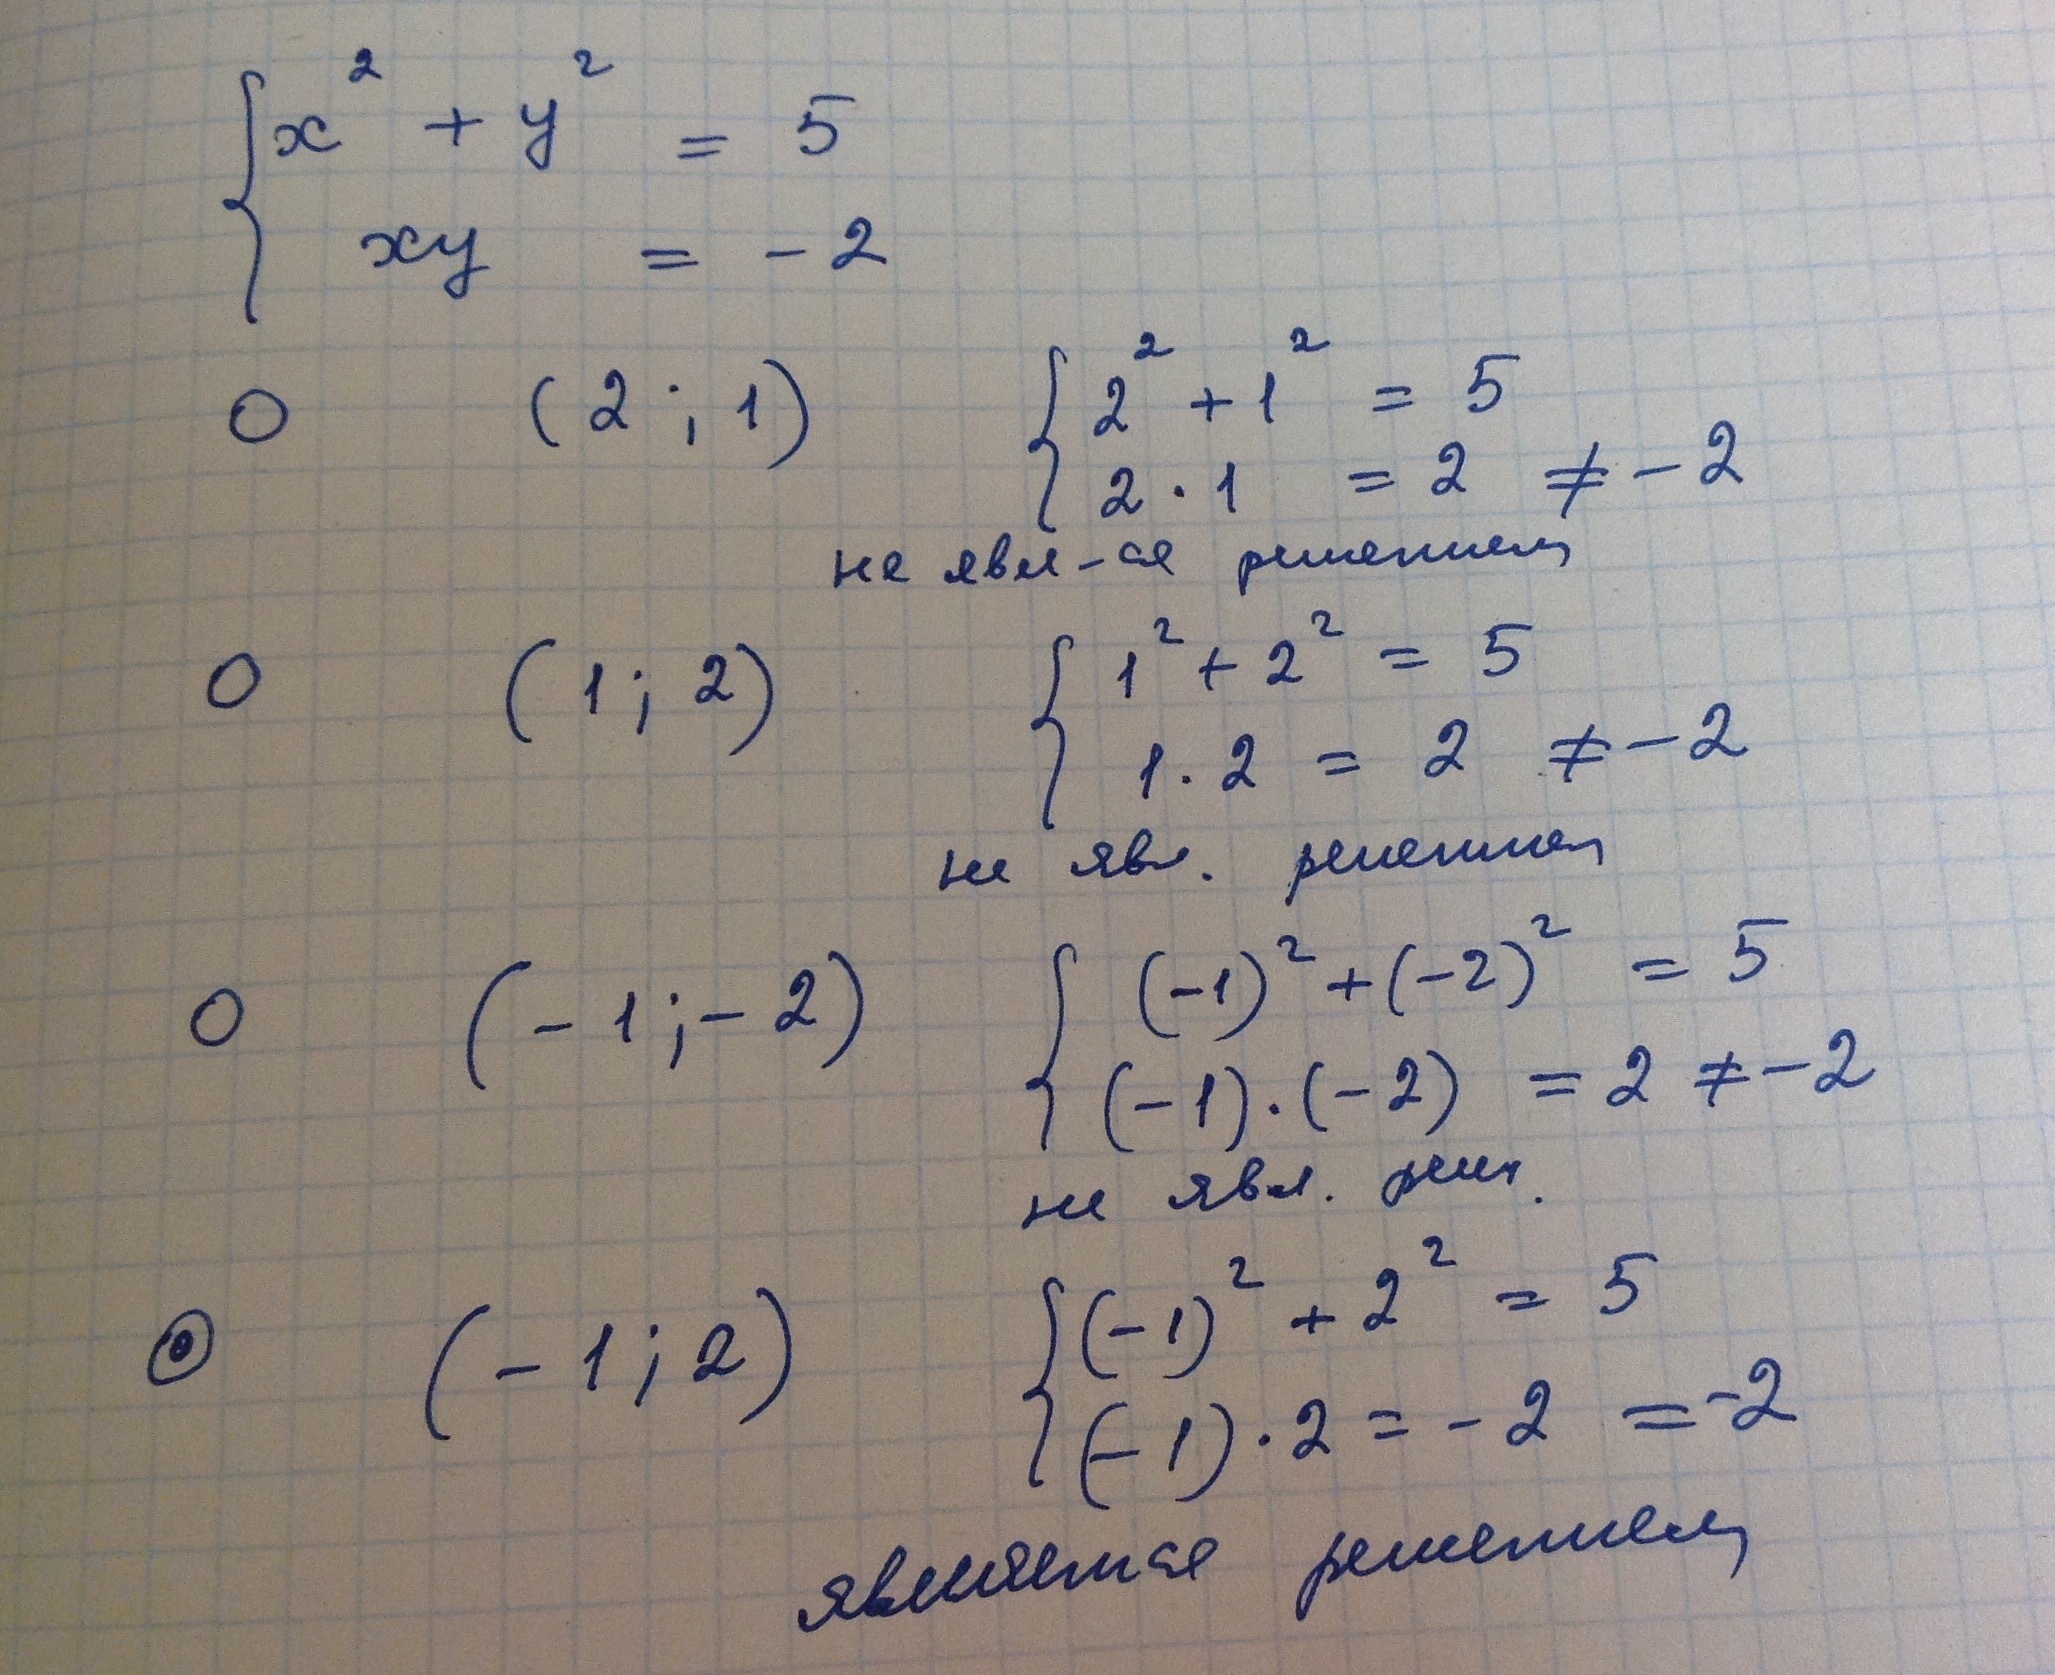 x² + y² = 5
xy = -2
(2 ; 1)
2² + 1² = 5
2 · 1 = 2 ≠ -2
не явл-ся решением
(1 ; 2)
1² + 2² = 5
1 · 2 = 2 ≠ -2
не явл. решением
(-1 ; -2)
(-1)² + (-2)² = 5
(-1) · (-2) = 2 ≠ -2
не явл. реш.
(-1 ; 2)
(-1)² + 2² = 5
(-1) · 2 = -2 = -2
является решением